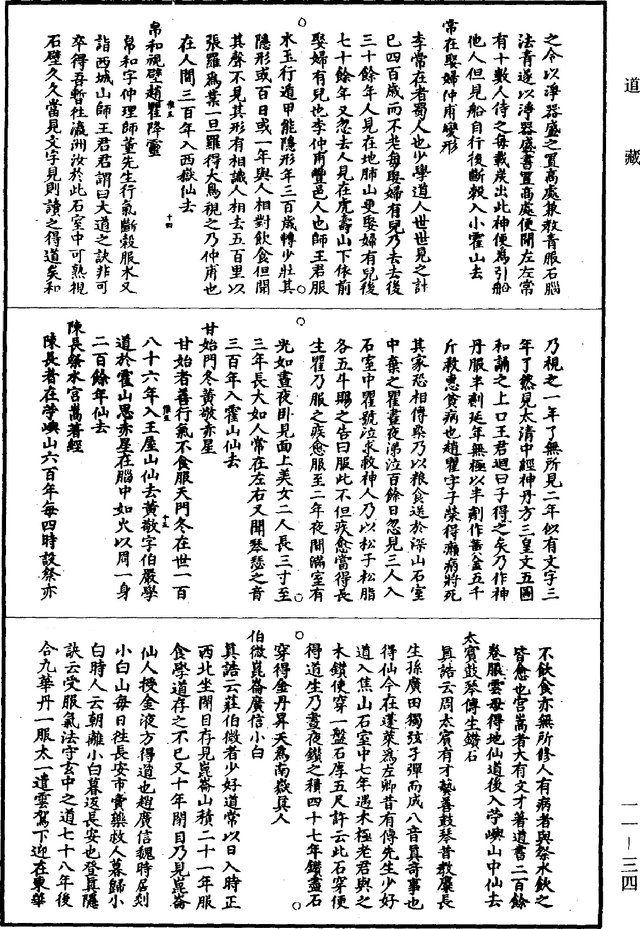 道藏
之令以淨器盛之置高處兼教青服石腦
法青遂以淨器盛書置高處便聞左左常
有十數人侍之每載炭出此神便爲引船
他人但見船自行後斷穀入小霍山去
常在娶婦仲甫變形
李常在者蜀人也少學道人世世見之計
已四百歲而不老每娶婦有兒乃去去後
三十餘年人見在地肺山更娶婦有兒後
七十餘年又忽去人見在虎壽山下依前
娶婦有兒也李仲甫豐邑人也師王君服
水玉行遁甲能隱形年三百歲轉少壯其
隱形或百日或一年與人相對飲食但聞
其聲不見其形有相識人相去五百里以
張羅爲業一旦羅得大鳥視之乃仲甫也
在人間三百年入西嶽仙去
帛和視壁趙瞿降靈
帛和字仲理師董先生行氣斷穀服朮又
詣西城山師王君君謂曰大道之訣非可
卒得吾暫往瀛洲汝於此石室中可熟視
石壁久久當見文字見則讀之得道矣和
乃視之一年了無所見二年似有文字三
年了然見太清中經神丹方三皇文五圖
和誦之上口王君迴曰子得之矣乃作神
丹服半劑延年無極以半劑作黃金五千
斤救惠貧病也趙瞿字子榮得癩病將死
其家恐相傳染乃以粮食送於深山石室
中棄之瞿晝夜涕泣百餘日忽見三人入
石室中瞿號泣求救神人乃以松子松脂
各五斗賜之告曰服此不但疾愈當得長
生瞿乃服之疾愈服至二年夜間隔室有
光如晝夜卧見面上美女二人長三寸至
三年長大如人常在左右又聞琴瑟之音
三百年入霍山仙去
甘始門冬黃敬赤星
甘始者善行氣不食服天門冬在世一百
八十六年入王屋山仙去黃敬字伯嚴學
道於霍山思赤星在腦中如火以周一身
二百餘年仙去
陳長祭水宮嵩著經
陳長者在苧嶼山六百年每四時設祭亦
不飲食亦無所修人有病者與祭水飲之
皆愈也宮嵩者大有文才著道書二百餘
卷服雲母得地仙道後入苧嶼山中仙去
太賓鼓琴傅生鑽石
真誥云周太賓有才藝善鼓琴昔教麋長
生孫廣田獨弦子彈而成八音真奇事也
得仙今在蓬萊爲左卿昔有傅先生少好
道入焦山石室中七年遇太極老君與之
木鑽使穿一盤石厚五尺許云此石穿便
得道生乃晝夜鑽之積四十七年鑽盡石
穿得金丹昇天爲南嶽真人
伯微崑崙廣信小白
真誥云莊伯微者少好道常以日入時正
西北坐閉目存見崑崙山積二十一年服
食學道存之不已又十年閉目乃見崑崙
仙人授金液方得道也趙廣信魏時居剡
小白山每日往長安市賣藥救人暮歸小
白時人云朝離小白暮返長安也登真隱
訣云受服氣法守玄中之道七十八年後
合九華丹一服太一遣雲駕下迎在東華
一一－三四